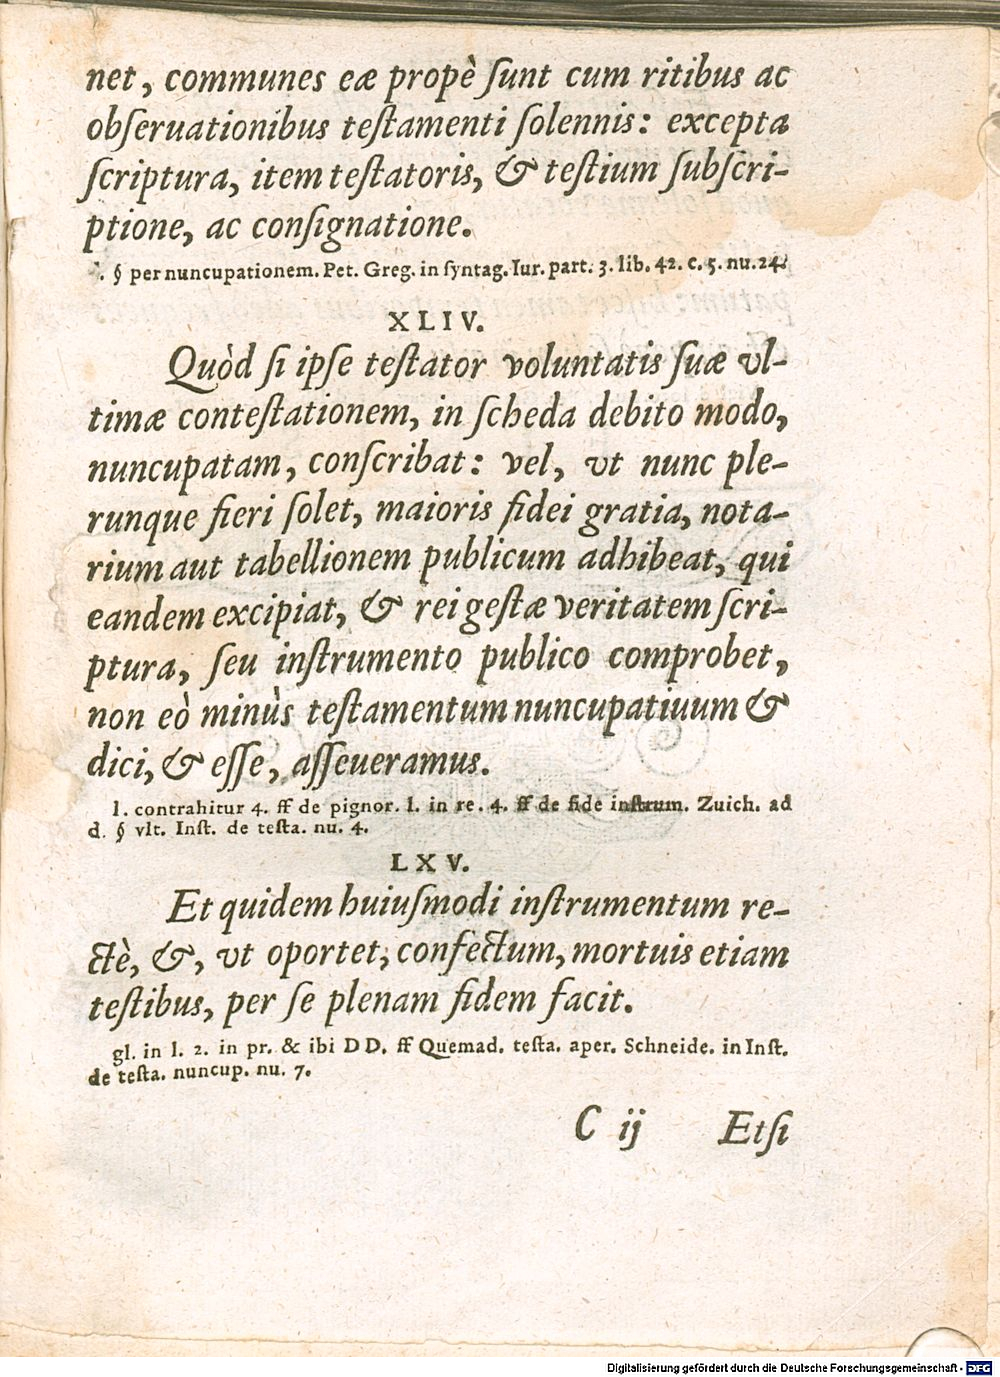 net, communes eæ propè ſunt cum ritibus ac
obſeruationibus teſtamenti ſolennis: excepta
ſcriptura, item teſtatoris, & teſtium ſubſcri-
ptione, ac conſignatione.
. § per nuncupationem. Pet. Greg. in ſyntag. Iur. part. 3. lib. 42. c. 5. nu. 24.
XLIV.
Quòd ſi ipſe teſtator voluntatis ſuæ vl-
timæ conteſtationem, in ſcheda debito modo,
nuncupatam, conſcribat: vel, vt nunc ple-
runque fieri ſolet, maioris fidei gratia, nota-
rium aut tabellionem publicum adhibeat, qui
eandem excipiat, & rei geſtæ veritatem ſcri-
ptura, ſeu inſtrumento publico comprobet,
non eò minùs teſtamentum nuncupatiuum &
dici, & eſſe, aſſeueramus.
l. contrahitur 4. ff de pignor. l. in re. 4. ff de fide inſtrum. Zuich. ad
d. § vlt. Inſt. de teſta. nu. 4.
LXV.
Et quidem huiuſmodi inſtrumentum re-
ctè, &, vt oportet, confectum, mortuis etiam
teſtibus, per ſe plenam fidem facit.
gl. in l. 2. in pr. & ibi DD. ff Quemad. teſta. aper. Schneide. in Inſt.
de teſta. nuncup. nu. 7.
C ij Etſi
Digitalisierung gefördert durch die Deutsche Forschungsgemeinschaft - DFG